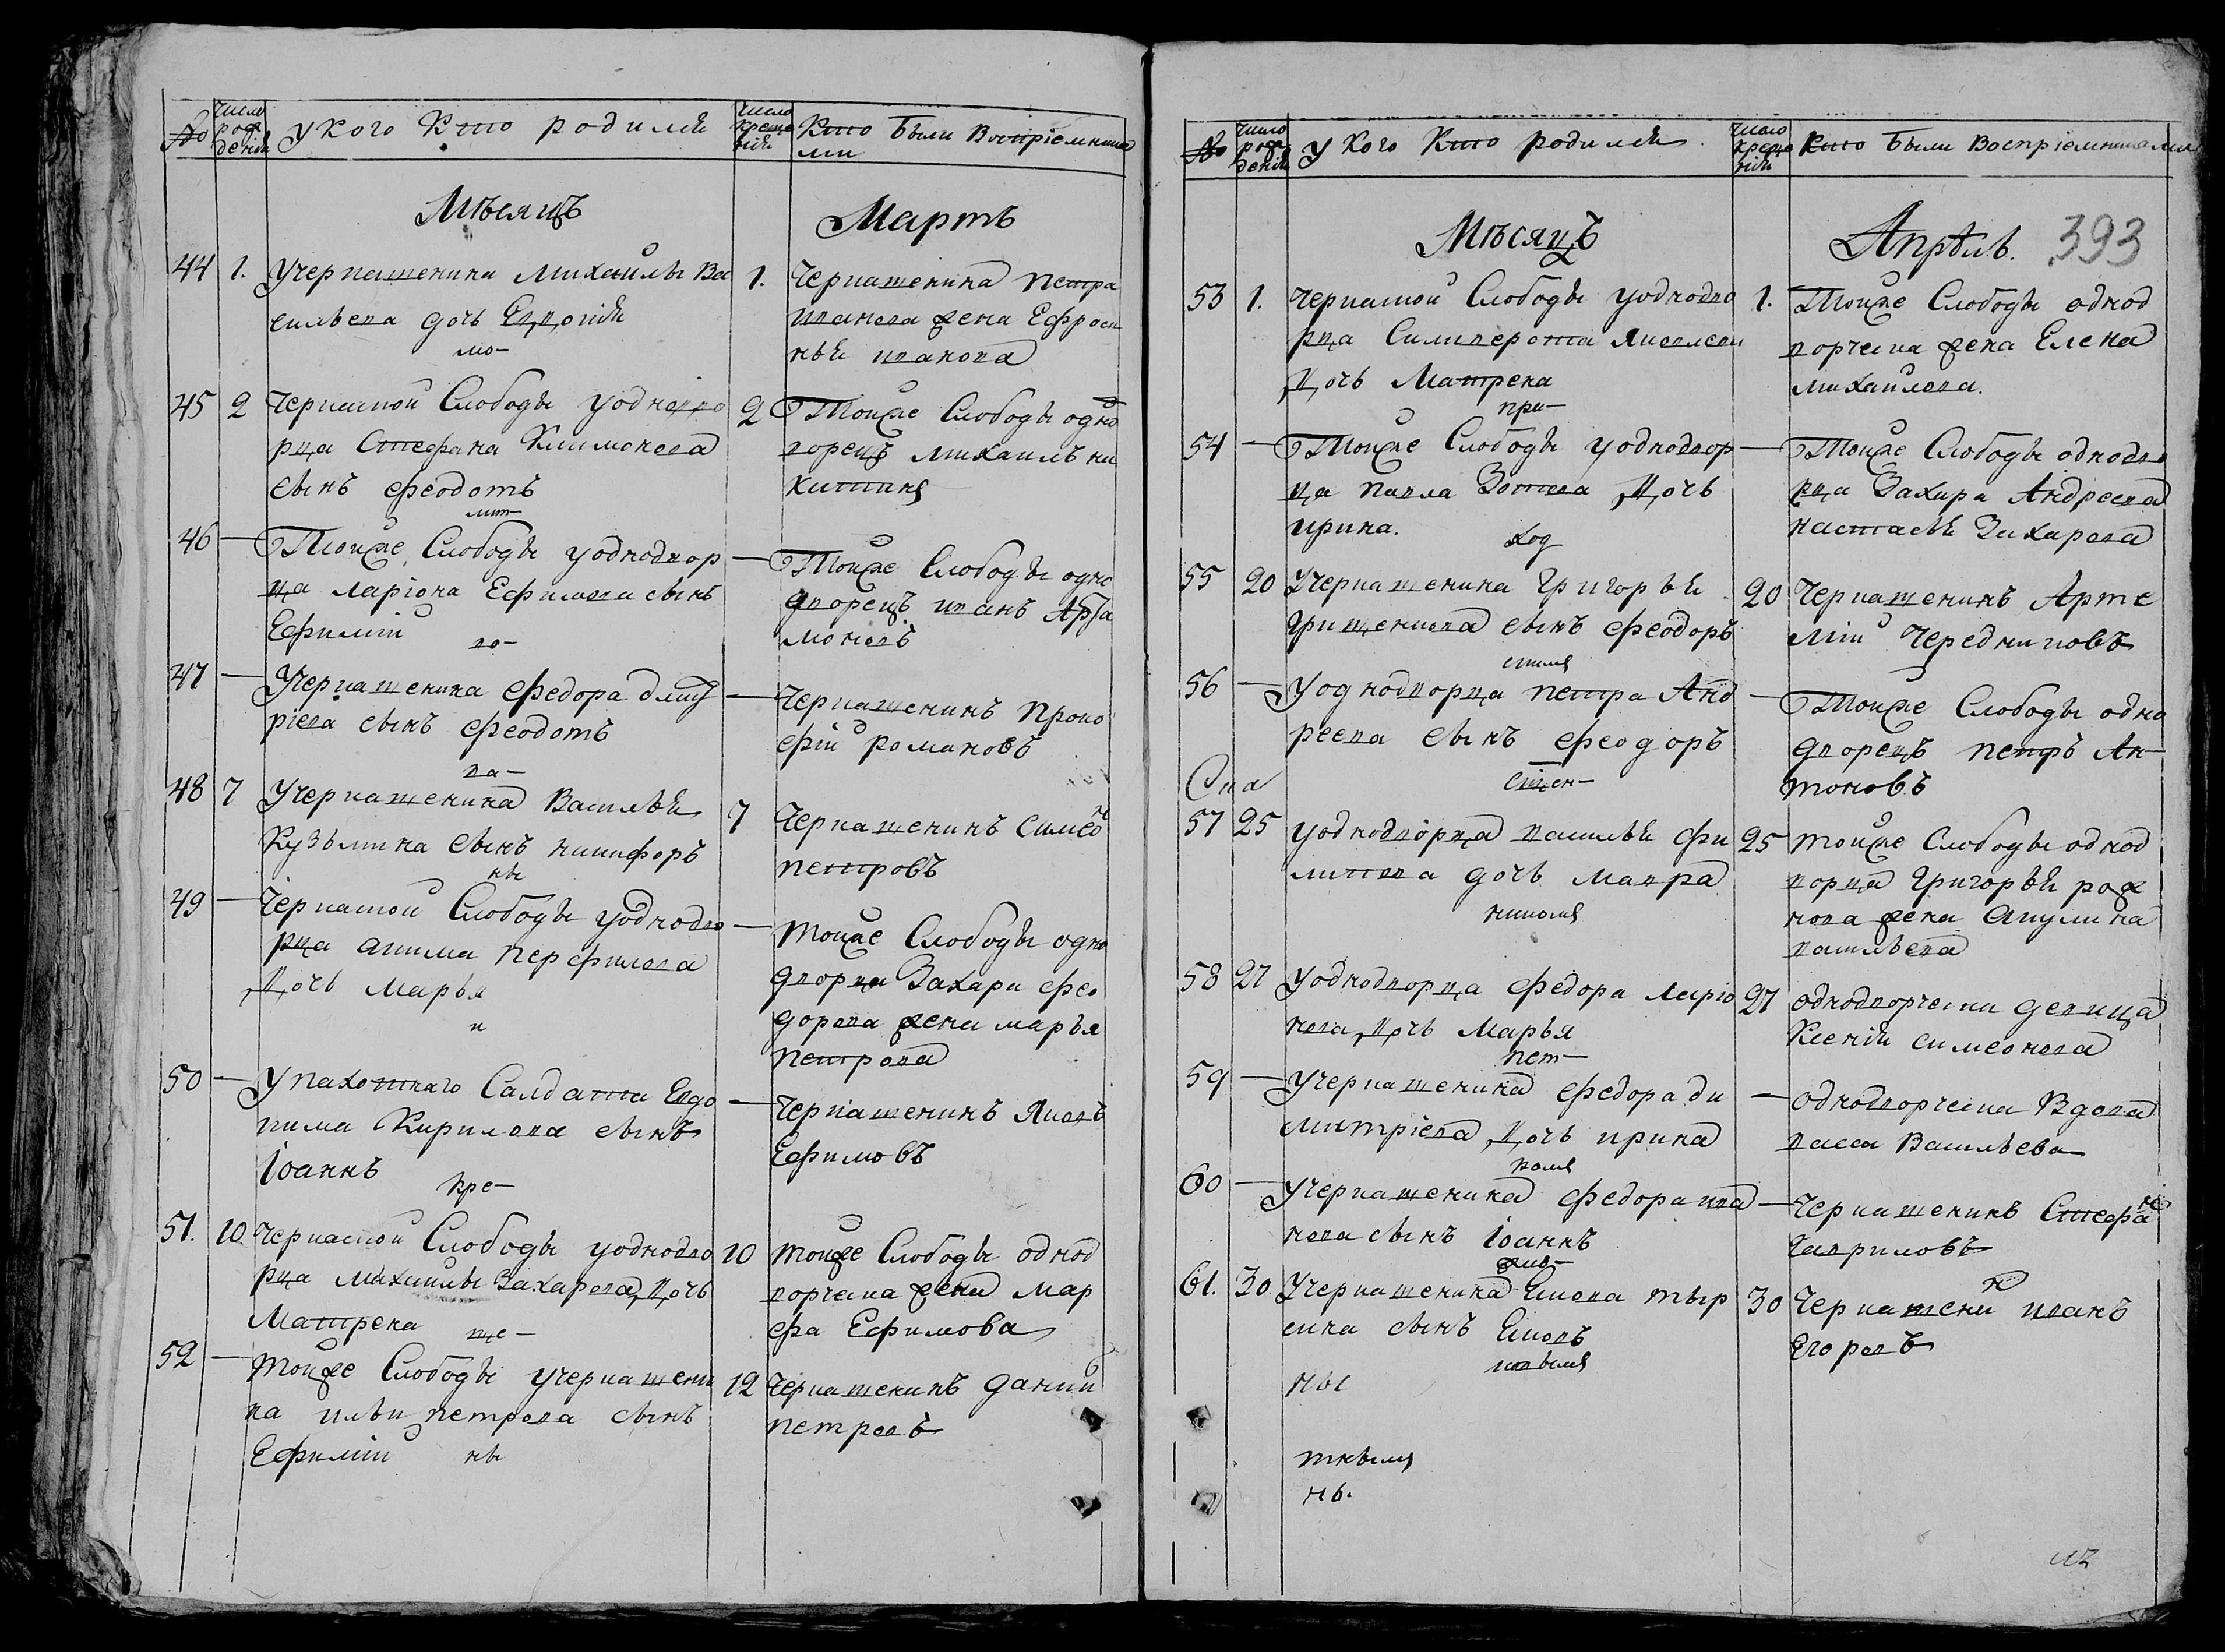 №
число рождения
У кого Кто родился
число крещения
Кто Были Воспріемниками
Мѣсяцъ
Мартъ
44 1. Учеркашенина Михаилы Ва
сильева дочь Евдокія
мо-
1. Черкашенина петра
иванова жена Ефроси
нья иванова
45 2 Черкаской Слободы уоднодво
рца Стефана Климонова
сынъ Феодотъ
лит-
2 Тойже Слободы одно
дворецъ михаилъ ни
китинъ
46 — Тойже Слободы уоднодвор
ца ларіона Ефимова сынъ
Ефимій
во-
— Тойже Слободы одно
дворецъ иванъ Арта
моновъ
47 — Учеркашенина Федора дмит
ріева сынъ Феодотъ
ва-
— Черкашенинъ Проко
фій романовъ
48 7 Учеркашенина Василья
Кузьмина сынъ никифоръ
ны
7 Черкашенинъ симео
петровъ
49 — Черкаской Слободы уоднодво
рца акима перфилова
Дочь Марья
и
— тойже Слободы одно
дворца Захара фео
дорова жена марья
петрова
50 — У пахотнаго Салдата Евдо
кима Кирилова сынъ
іоаннъ
кре-
— Черкашенинъ Яковъ
Ефимовъ
51. 10 Черкаской Слободы уоднодво
рца михаилы Захарова Дочь
Матрена
ще-
10 тойже Слободы однод
ворческа жена мар
фа Ефимова
52 — тойже Слободы учеркашени
на ильи петрова сынъ
Ефимій
ны
12 Черкашенинъ дании
петровъ
№
число рождения
У кого Кто родился
число крещенія
Кто Были Воспріемниками
Мѣсяцъ
Апрѣль.
393
53 1. Черкаской Слободы уоднодво
рца Силиверста Яковлева
Дочь Матрена
при-
1. Тойже Слободы однод
ворческа жена Елена
михаилова.
54 — Тойже Слободы уоднодвор
ца павла Зотова Дочь
ирина.
ход
— Тойже Слободы однодво
рца Захара Андреева
настасья Захарова
55 20 Учеркашенина Григорья
Грищенкова сынъ Феодоръ
скимъ
20 Черкашенинъ Арте
мій Чередниковъ
56 — Уоднодворца петра Анд
реева сынъ Феодоръ
священ-
— Тойже Слободы одно
дворецъ петръ Ан-
тоновъ
57 25 уоднодворца васылья Фи
липова дочь мавра
никомъ
25 тойже Слободы однод
ворца Григорья рож
нова жена акулина
васильева
58 27 Уоднодворца Федора ларіо
нова Дочь Марья
пет-
27 однодворческа девица
Ксенія симеонова
59 — Учеркашенина Федора ди
митріева Дочь ирина
ромъ
— однодворческа Вдова
васса Васильева
60 — Учеркашенина Федора ива
нова сынъ іоаннъ
— Черкашенинъ Стефа
Гавриловъ
61. 30 Учеркашенина Якова тыр
сина сынъ Яковъ
30 Черкашени иванъ
Егоровъ
ны